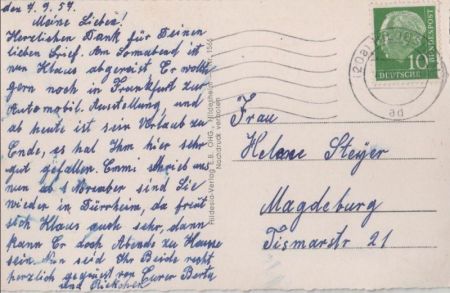 den 4.9.57.
Meine Lieben!
Herzlichen Dank für Deinen
lieben Brief. Am Sonnabend ist
nun Klaus abgereist Er wollte
gern noch in Frankfurt zur
Automobil. Ausstellung, und
ab heute ist sein Urlaub zu
Ende, es hat Ihm hier sehr
gut gefallen. Emmi schrieb uns
nun ab 1 November sind Sie
wieder in Dürrheim, da freut
sich Klaus auch sehr, dann
kann Er doch Abends zu Hause
sein. Nun seid Ihr Beide recht
herzlich gegrüsst von Eurer Berta
und
Hildesia-Verlag E.B. OHG., Hildesheim
Nachdruck verboten
10
DEUTSCHE
BUNDESPOST
(20a)
ad
Frau
Helene Steyer
Magdeburg
Tismarstr 21